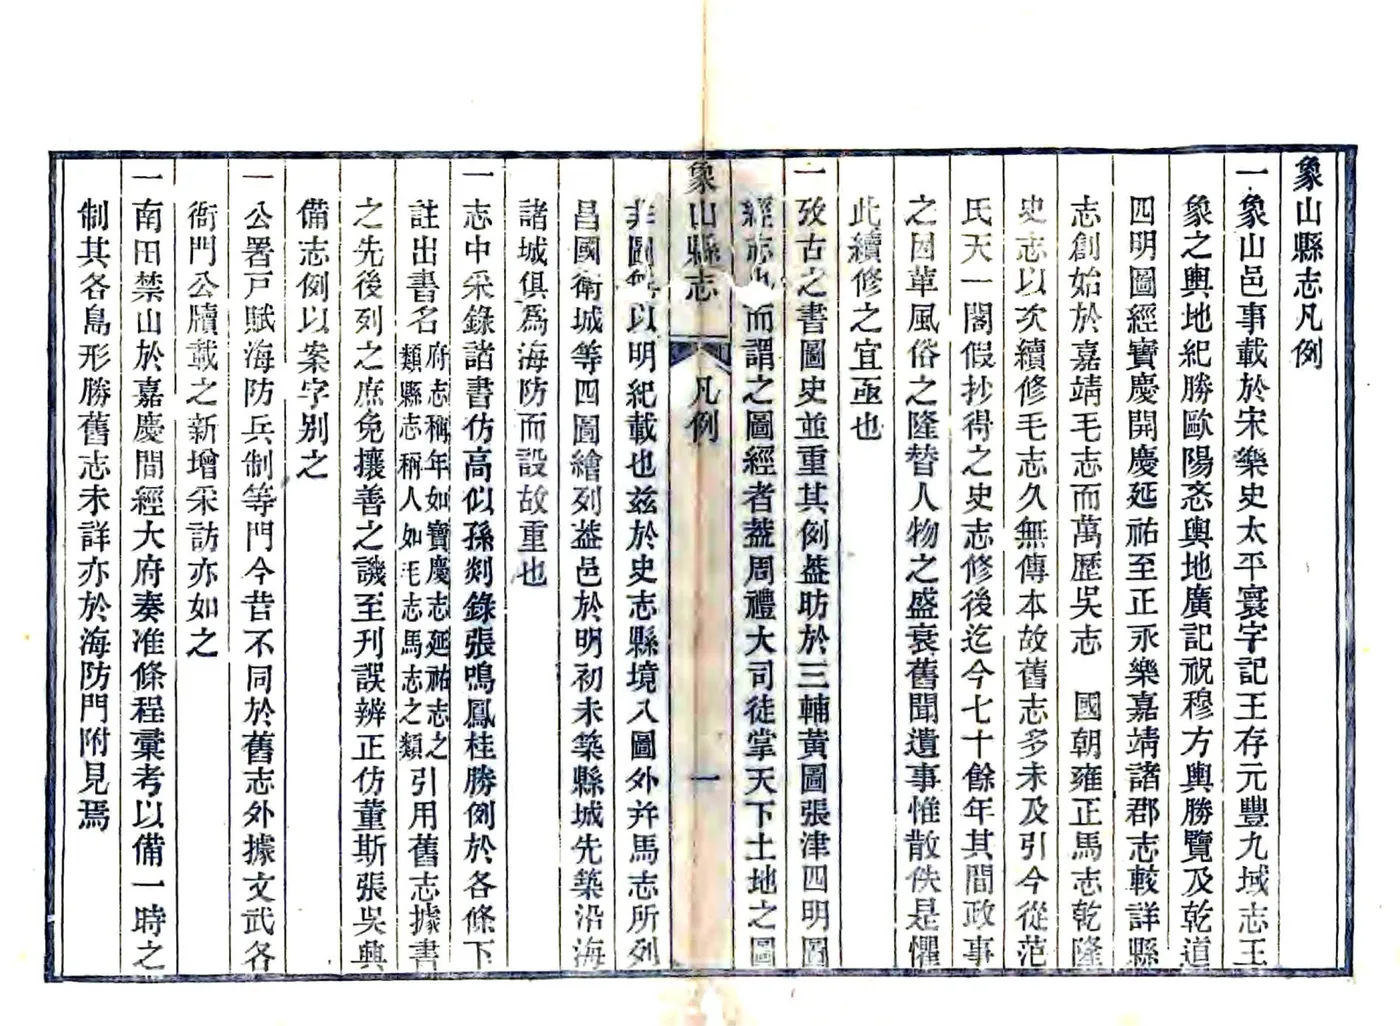 象山縣志凡例
一象山邑事載於宋樂史太平寰宇記王存元豐九域志王
象之輿地紀勝歐陽忞輿地廣記祝穆方輿勝覽及乾道
四明圖經寶慶開慶延祐至正永樂嘉靖諸郡志較詳縣
志創始於嘉靖毛志而萬歷吳志　國朝雍正馬志乾隆
史志以次續修毛志久無傳本故舊志多未及引今從范
氏天一閣假抄得之史志修後迄今七十餘年其間政事
之因革風俗之隆替人物之盛衰舊聞遺事惟散佚是懼
此續修之宜亟也
一攷古之書圖史並重其例葢昉於三輔黃圖張津四明圖
經志也而謂之圖經者葢周禮大司徒掌天下土地之圖
非圖無以明紀載也茲於史志縣境入圖外幷馬志所列
昌國衛城等四圖繪列葢邑於明初未築縣城先築沿海
諸城俱爲海防而設故重也
一志中采錄諸書仿高似孫剡錄張鳴鳳桂勝例於各條下
註出書名府志稱年如寶慶志延祐志之類縣志稱人如毛志馬志之類引用舊志據書
之先後列之庶免攘善之譏至刊誤辨正仿董斯張吳興
備志例以案字別之
一公署戸賦海防兵制等門今昔不同於舊志外據文武各
衙門公牘載之新增采訪亦如之
一南田禁山於嘉慶間經大府奏准條程彙考以備一時之
制其各島形勝舊志未詳亦於海防門附見焉
象山縣志
凡例
一